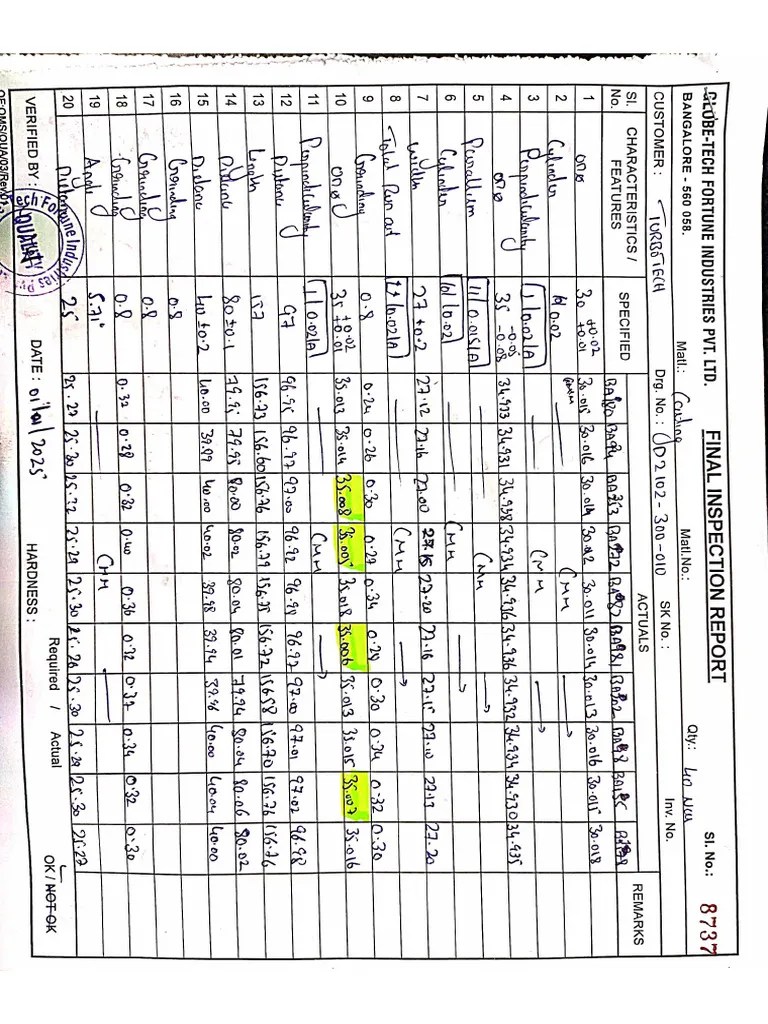 GLOBE-TECH FORTUNE INDUSTRIES PVT. LTD. FINAL INSPECTION REPORT Sl. No.: 8737
BANGALORE - 560 058. Matl.: Matl.No.: Qty.:
CUSTOMER : TURBOTECH Drg. No.: SK No.: Inv. No.
Sl. No. CHARACTERISTICS / FEATURES SPECIFIED ACTUALS REMARKS
1 30 +0.02 +0.01 30.015 30.016 30.014 30.012 30.011 30.014 30.013 30.016 30.015 30.018
2 Cylinder 0.02 CMM
3 Perpendicularity 0.02 A CMM
4 35 -0.05 -0.08 34.933 34.931 34.938 34.934 34.936 34.936 34.932 34.934 34.930 34.935
5 Parallism // 0.015 A CMM
6 Cylinder 0.02 CMM
7 Width 27 ±0.2 27.12 27.16 27.00 27.15 27.20 27.16 27.15 27.10 27.13 27.20
8 Total Run out 0.02 A CMM
9 Grinding 0.8 0.24 0.26 0.30 0.29 0.34 0.28 0.30 0.34 0.32 0.30
10 35 +0.02 +0.01 35.013 35.014 35.008 35.005 35.018 35.006 35.013 35.015 35.007 35.016
11 Perpendicularity 0.02 A CMM
12 Distance 97 96.95 96.97 97.00 96.92 96.98 96.97 97.00 97.01 97.02 96.98
13 Length 157 156.73 156.60 156.76 156.79 156.78 156.72 156.58 156.70 156.76 156.76
14 Distance 80 ±0.1 79.95 79.95 80.00 80.02 80.04 80.01 79.94 80.04 80.06 80.02
15 Distance 40 ±0.2 40.00 39.99 40.00 40.02 39.98 39.94 39.96 40.00 40.04 40.00
16 Grinding 0.8
17 Grinding 0.8
18 Grinding 0.8 0.32 0.28 0.32 0.40 0.36 0.32 0.32 0.34 0.32 0.30
19 Angle 5.71° CMM
20 25 25.27 25.30 25.32 25.29 25.30 25.28 25.30 25.29 25.30 25.27
VERIFIED BY : DATE : 01/01/2025 HARDNESS : Required / Actual OK / NOT OK
QUALITY